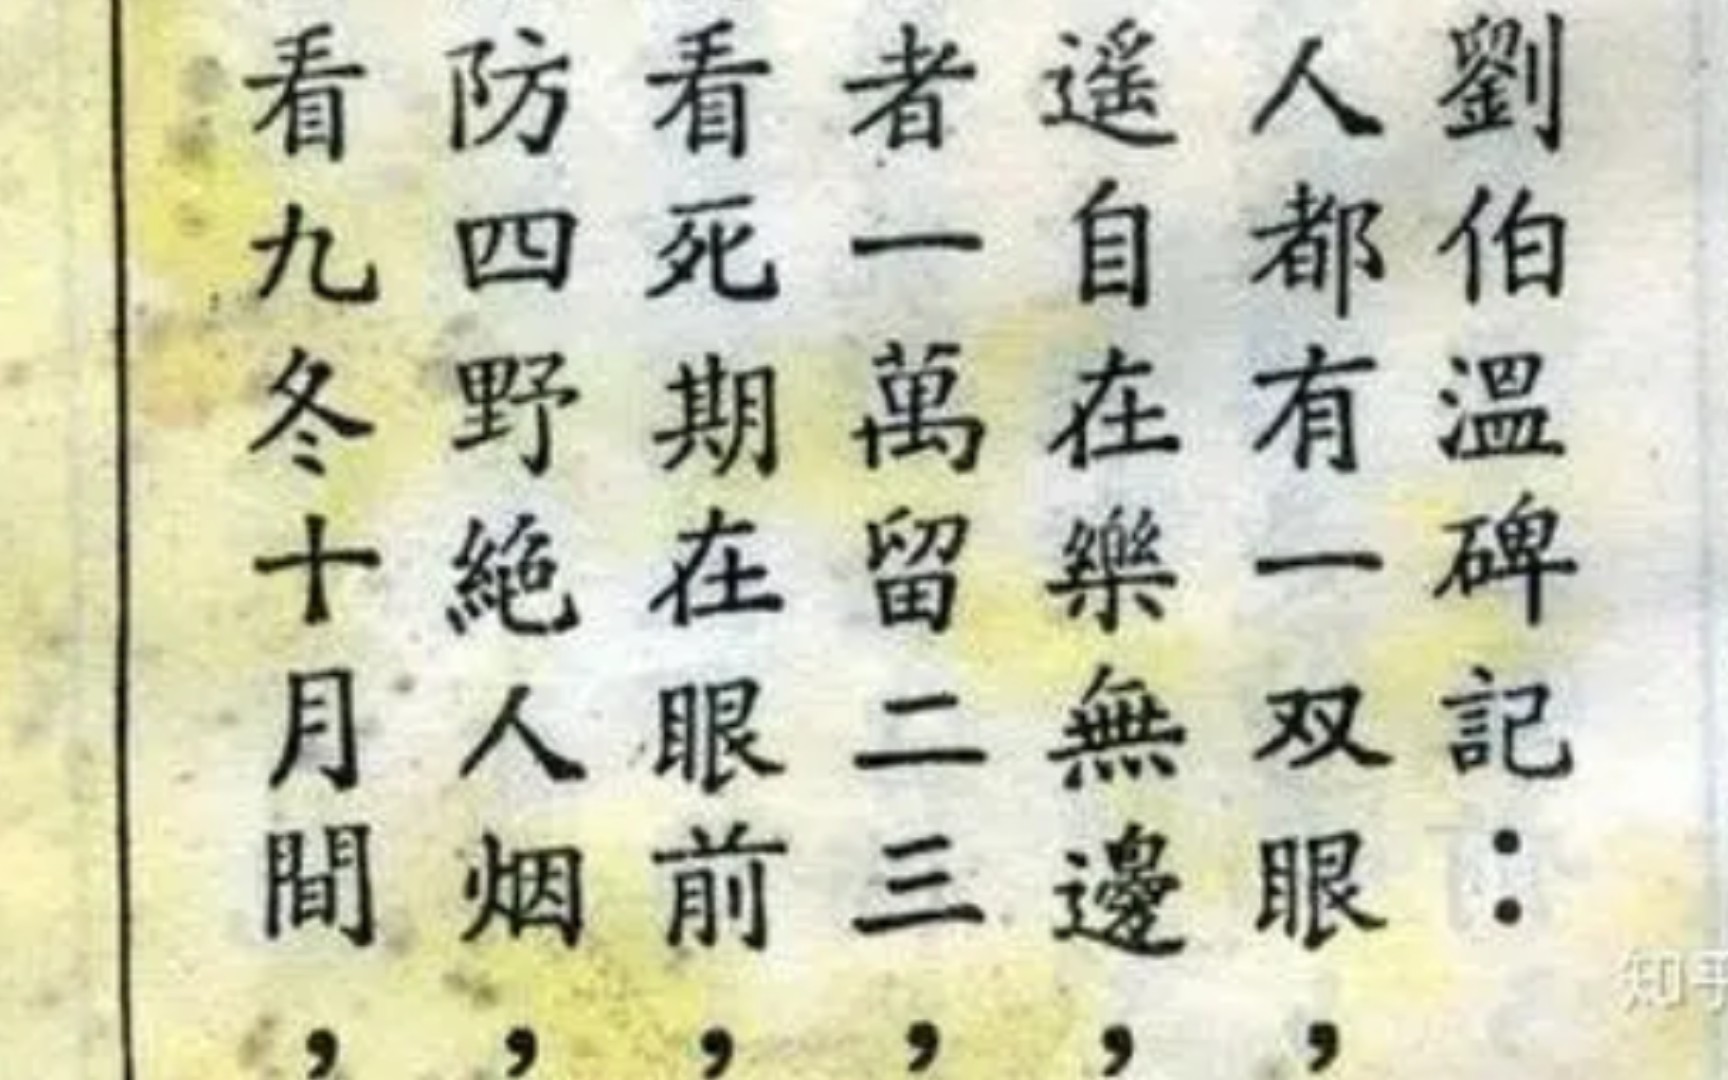 劉伯溫碑記：
人都有一双眼，
遥自在樂無邊，
者一萬留二三，
看死期在眼前，
防四野絕人烟，
看九冬十月間，
知乎